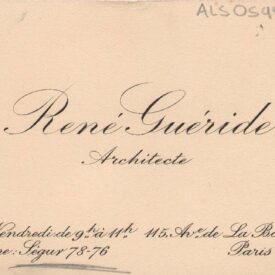 ALS 059
René Guéride
Architecte
Vendredi de 9h à 11h 115, Ave. de La Bo
ne: Ségur 78-76 Paris